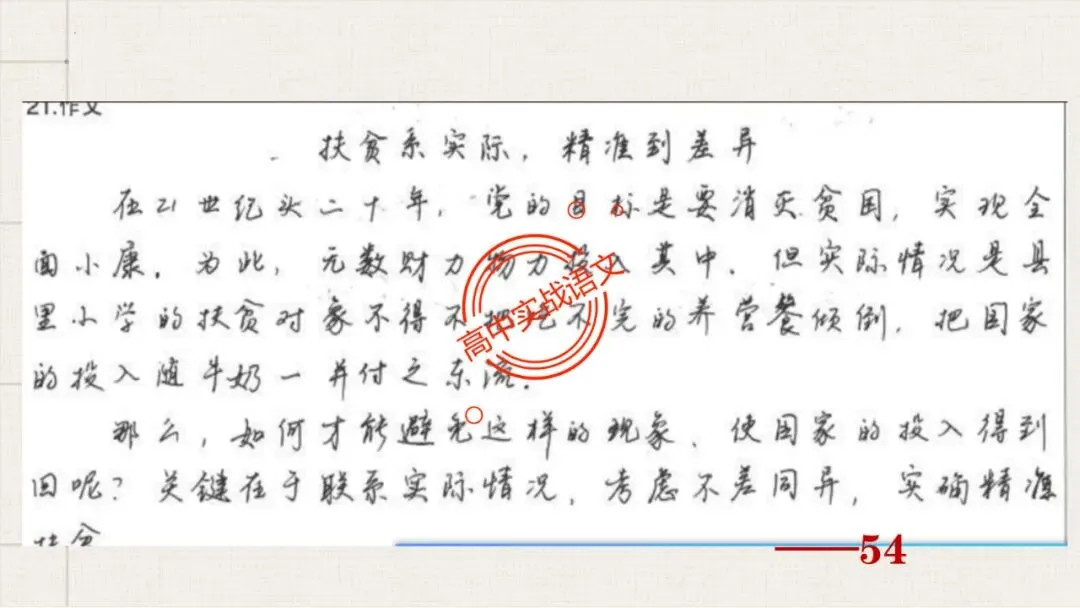 21.作文
扶贫系实际，精准到差异
在21世纪头二十年，党的目标是要消灭贫困，实现全
面小康。为此，无数财力物力投入其中。但实际情况是县
里小学的扶贫对象不得不把吃不完的养营餐倾倒，把国家
的投入随牛奶一并付之东流。
那么，如何才能避免这样的现象、使国家的投入得到
回呢？关键在于联系实际情况，考虑不差同异，实确精准
扶贫
高中实战语文
54